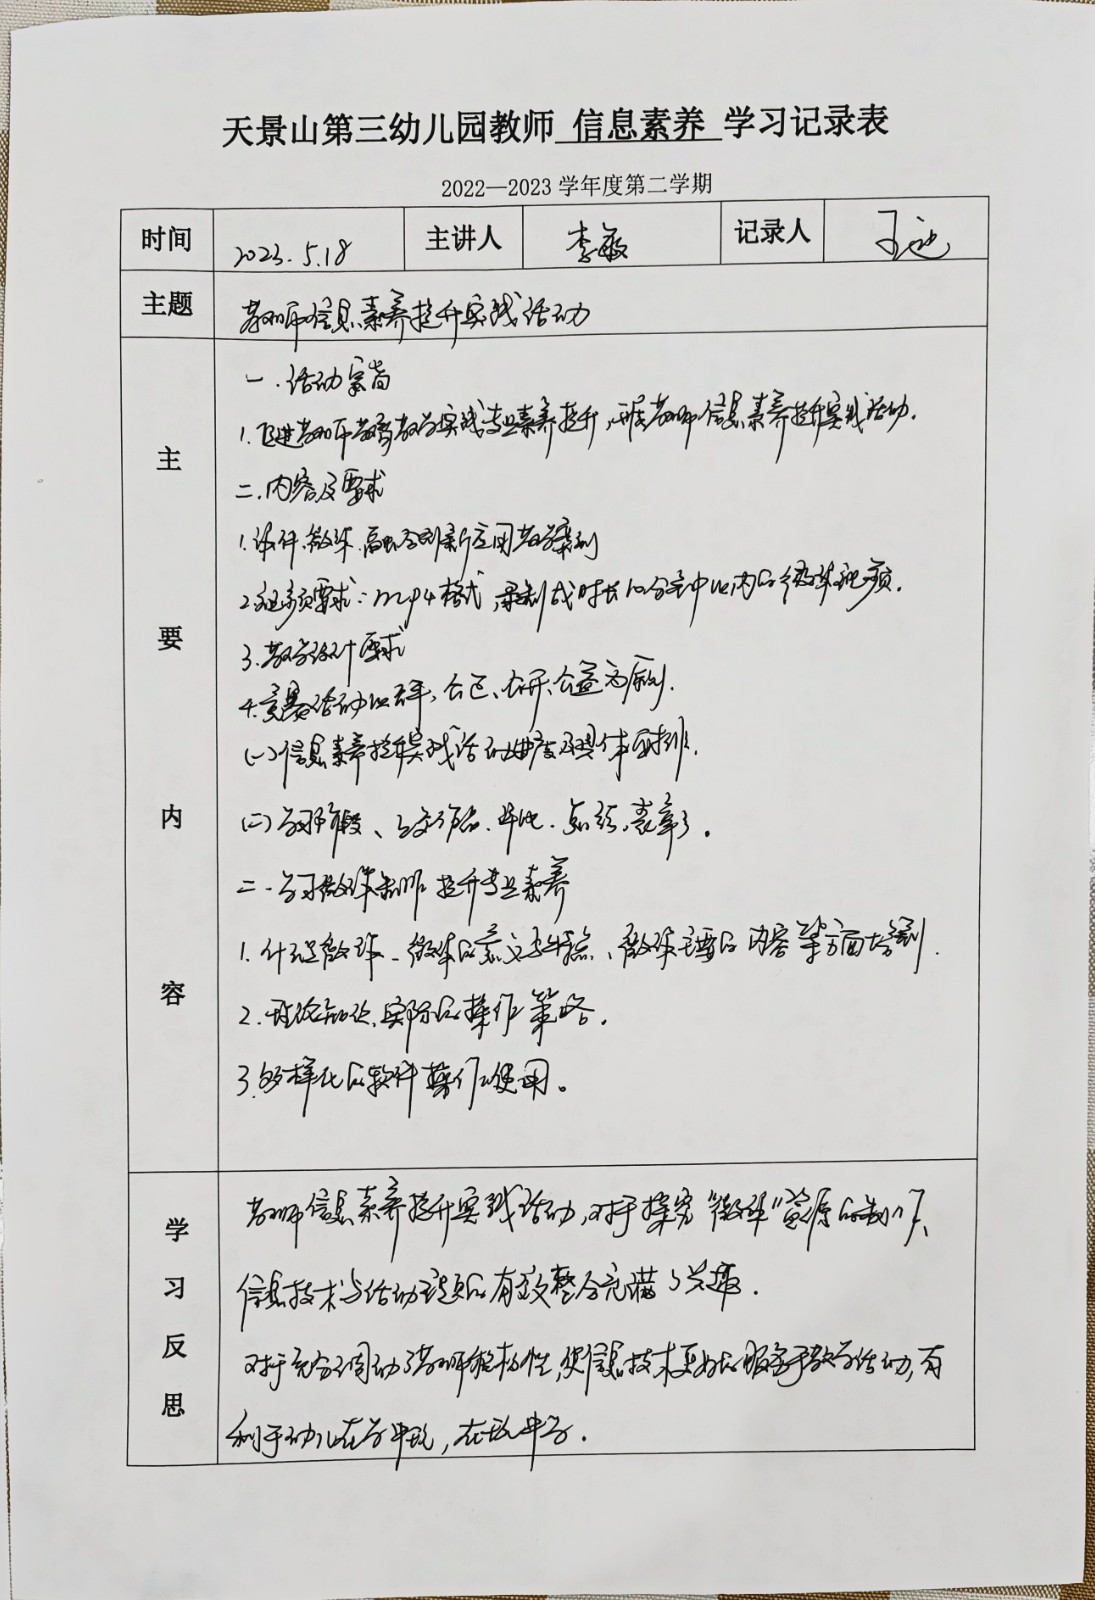 天景山第三幼儿园教师 信息素养 学习记录表
2022—2023 学年度第二学期
时间 2023.5.18 主讲人 李敏 记录人 王
主题 教师信息素养提升实践活动
主要内容
一.活动宗旨
1.促进教师教育教学实践专业素养提升,开展教师信息素养提升实践活动.
二.内容及要求
1.课件、微课、创新应用教学案例
2.视频要求:mp4格式,录制成时长10分钟以内的微课视频.
3.教学设计要求
4.竞赛活动以公平,公正、公开、公益为原则.
(一)信息素养提升实践活动进度及具体安排.
(二)学习阶段、上交作品.评比.总结.表彰.
二.学习微课制作 提升专业素养
1.什么是微课、微课的意义与特点、微课主要的内容等方面培训.
2.理论知识,实际的操作策略.
3.多样化的软件操作的使用。
学习反思
教师信息素养提升实践活动,对于探究“微课”资源的制作、
信息技术与活动的有效整合充满了兴趣.
对于充分调动了教师积极性,使信息技术更好的服务于教学活动,有
利于幼儿在学中玩,在玩中学.